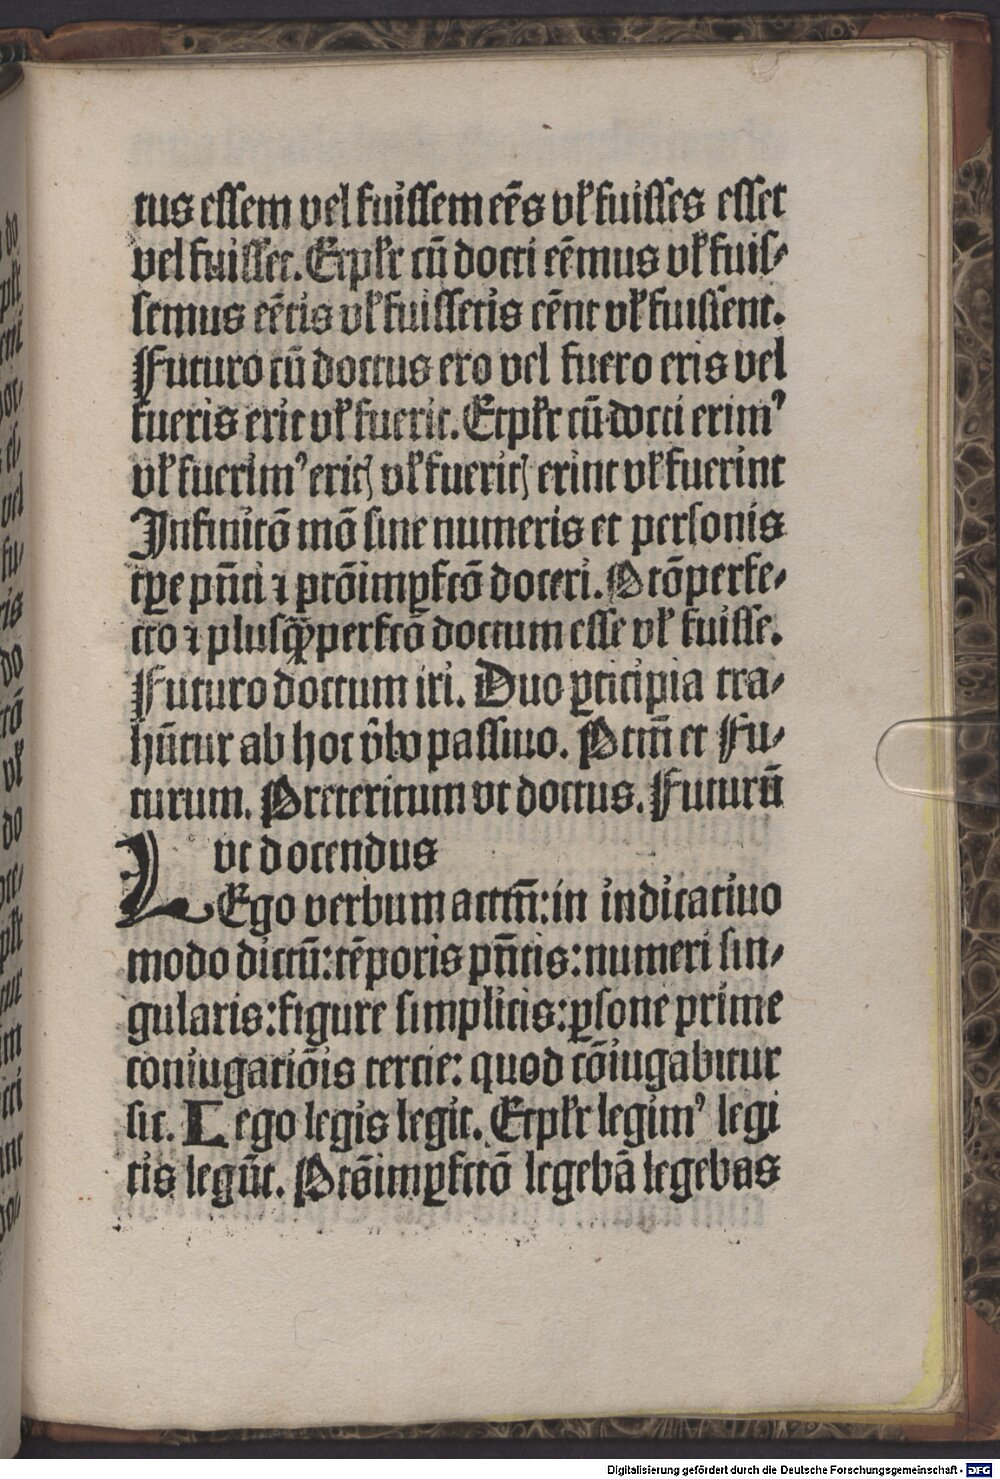 tus essem vel fuissem eēs vl̄ fuisses esset
vel fuisset. Etpl̄r cū docti eēmus vl̄ fuis⸗
semus eētis vl̄ fuissetis eēnt vl̄ fuissent.
Futuro cū doctus ero vel fuero eris vel
fueris erit vl̄ fuerit. Etpl̄r cū docti erimꝰ
vl̄ fuerimꝰ eritꝭ vl̄ fueritꝭ erint vl̄ fuerint
Infinitō mō sine numeris et personis
tꝑe pn̄ti ⁊ p̄tōimꝑfctō doceri. P̄tōperfe⸗
cto ⁊ plusqͣꝫperfctō doctum esse vl̄ fuisse.
Futuro doctum iri. Duo ꝑticipia tra⸗
hūtur ab hoc v̄bo passiuo. P̄tm̄ et Fu⸗
turum. Preteritum vt doctus. Futurū
vt docendus
LEgo verbum actm̄: in indicatiuo
modo dictū: tēporis pn̄tis: numeri sin⸗
gularis: figure simplicis: ꝑsone prime
coniugatiōis tercie: quod cōiugabitur
sic. Lego legis legit. Etpl̄r legimꝰ legi
tis legūt. P̄tōimꝑfctō legebā legebas
Digitalisierung gefördert durch die Deutsche Forschungsgemeinschaft - DFG